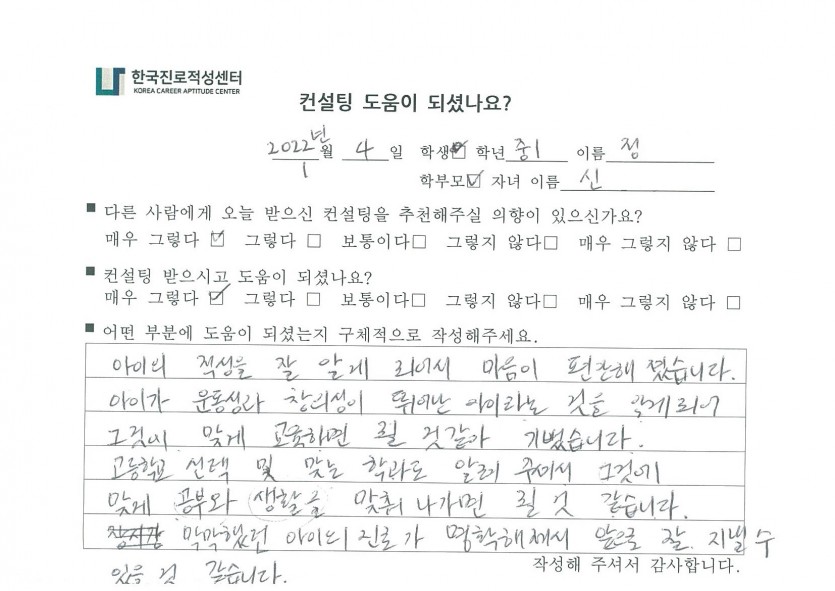 한국진로적성센터
KOREA CAREER APTITUDE CENTER
컨설팅 도움이 되셨나요?
2022년 1 월 4 일 학생☑ 학년 중1 이름 정
학부모☑ 자녀 이름 신
■ 다른 사람에게 오늘 받으신 컨설팅을 추천해주실 의향이 있으신가요?
매우 그렇다 ☑ 그렇다 □ 보통이다□ 그렇지 않다□ 매우 그렇지 않다 □
■ 컨설팅 받으시고 도움이 되셨나요?
매우 그렇다 ☑ 그렇다 □ 보통이다□ 그렇지 않다□ 매우 그렇지 않다 □
■ 어떤 부분에 도움이 되셨는지 구체적으로 작성해주세요.
아이의 적성을 잘 알게 되어서 마음이 편안해 졌습니다.
아이가 운동성과 창의성이 뛰어난 아이라는 것을 알게되어
그것에 맞게 교육하면 될 것같아 기뻤습니다.
고등학교 선택 및 맞는 학과도 알려 주셔서 그것에
맞게 공부와 생활을 맞춰 나가면 될 것 같습니다.
막막했던 아이의 진로가 명확해져서 앞으로 잘 지낼 수
있을 것 같습니다.
작성해 주셔서 감사합니다.